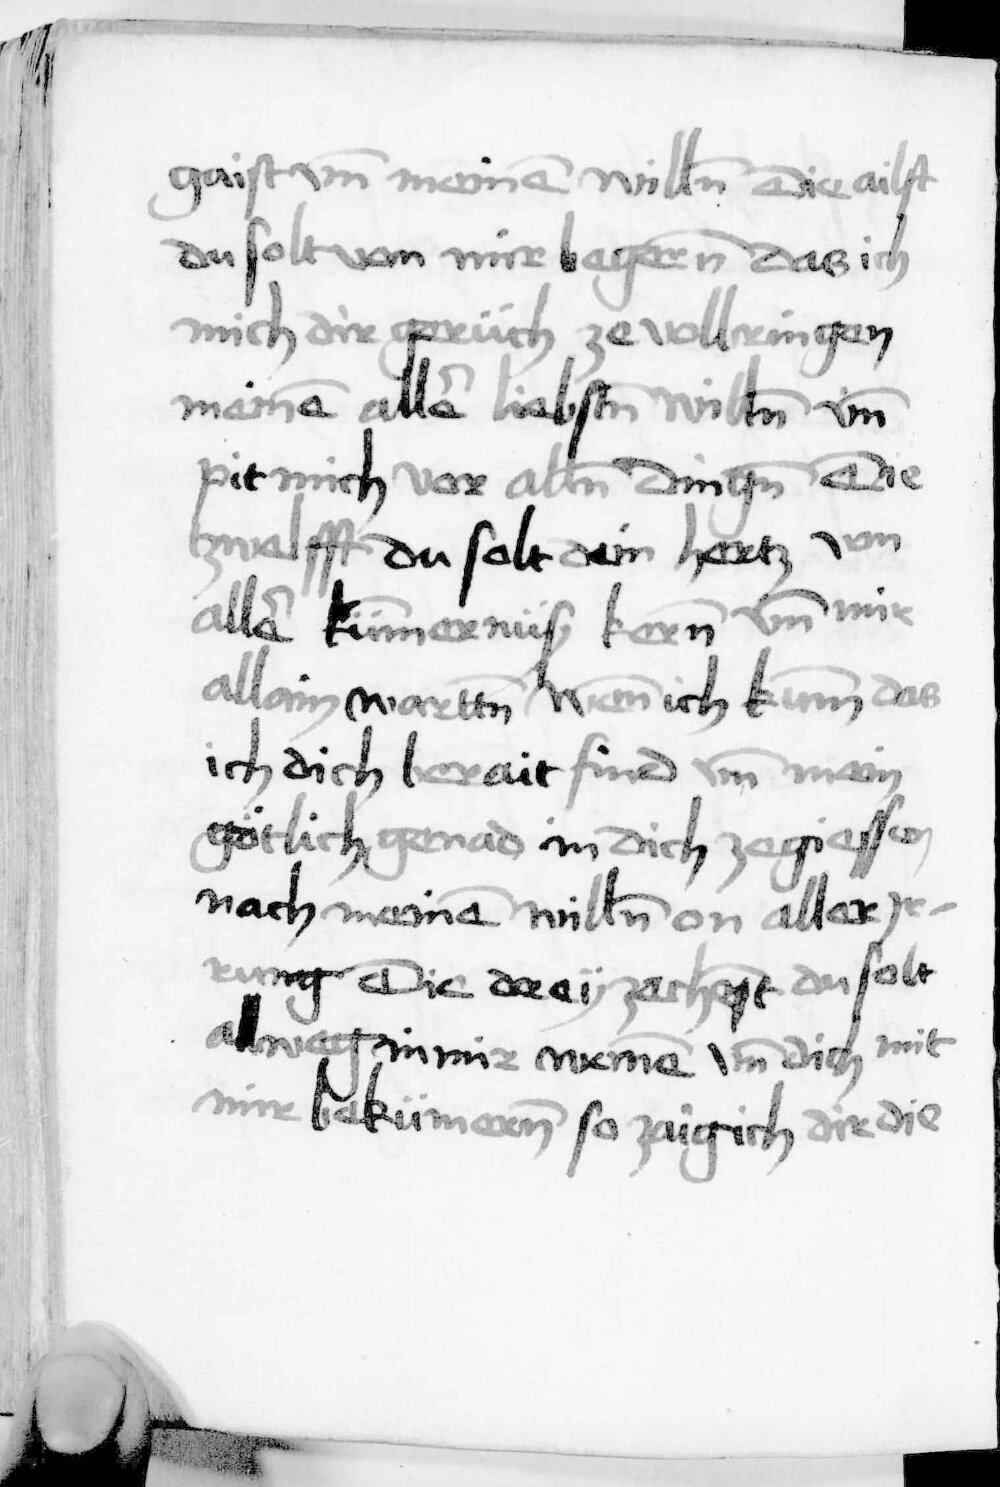 gaist vm̄ meinē willn̄ Die ailft
du solt von mir begern̄ das ich
mich dir gerüch ze vollbringen
meinē allē liebstn̄ willn̄ vn̄
pit mich vor alln̄ dingn̄ Die
zwelfft du solt dein hertz von
allē küm̄ernüß kern̄ vn̄ mir
allain warttn̄ wen̄ ich kum̄ das
ich dich berait find vn̄ mein
götlich genad in dich ze giessen
nach meinē willn̄ on aller jr-
rung Die dreyzechēt du solt
alweg in mir wonē vn̄ dich mit
mir bekümern̄ so zaig ich dir die